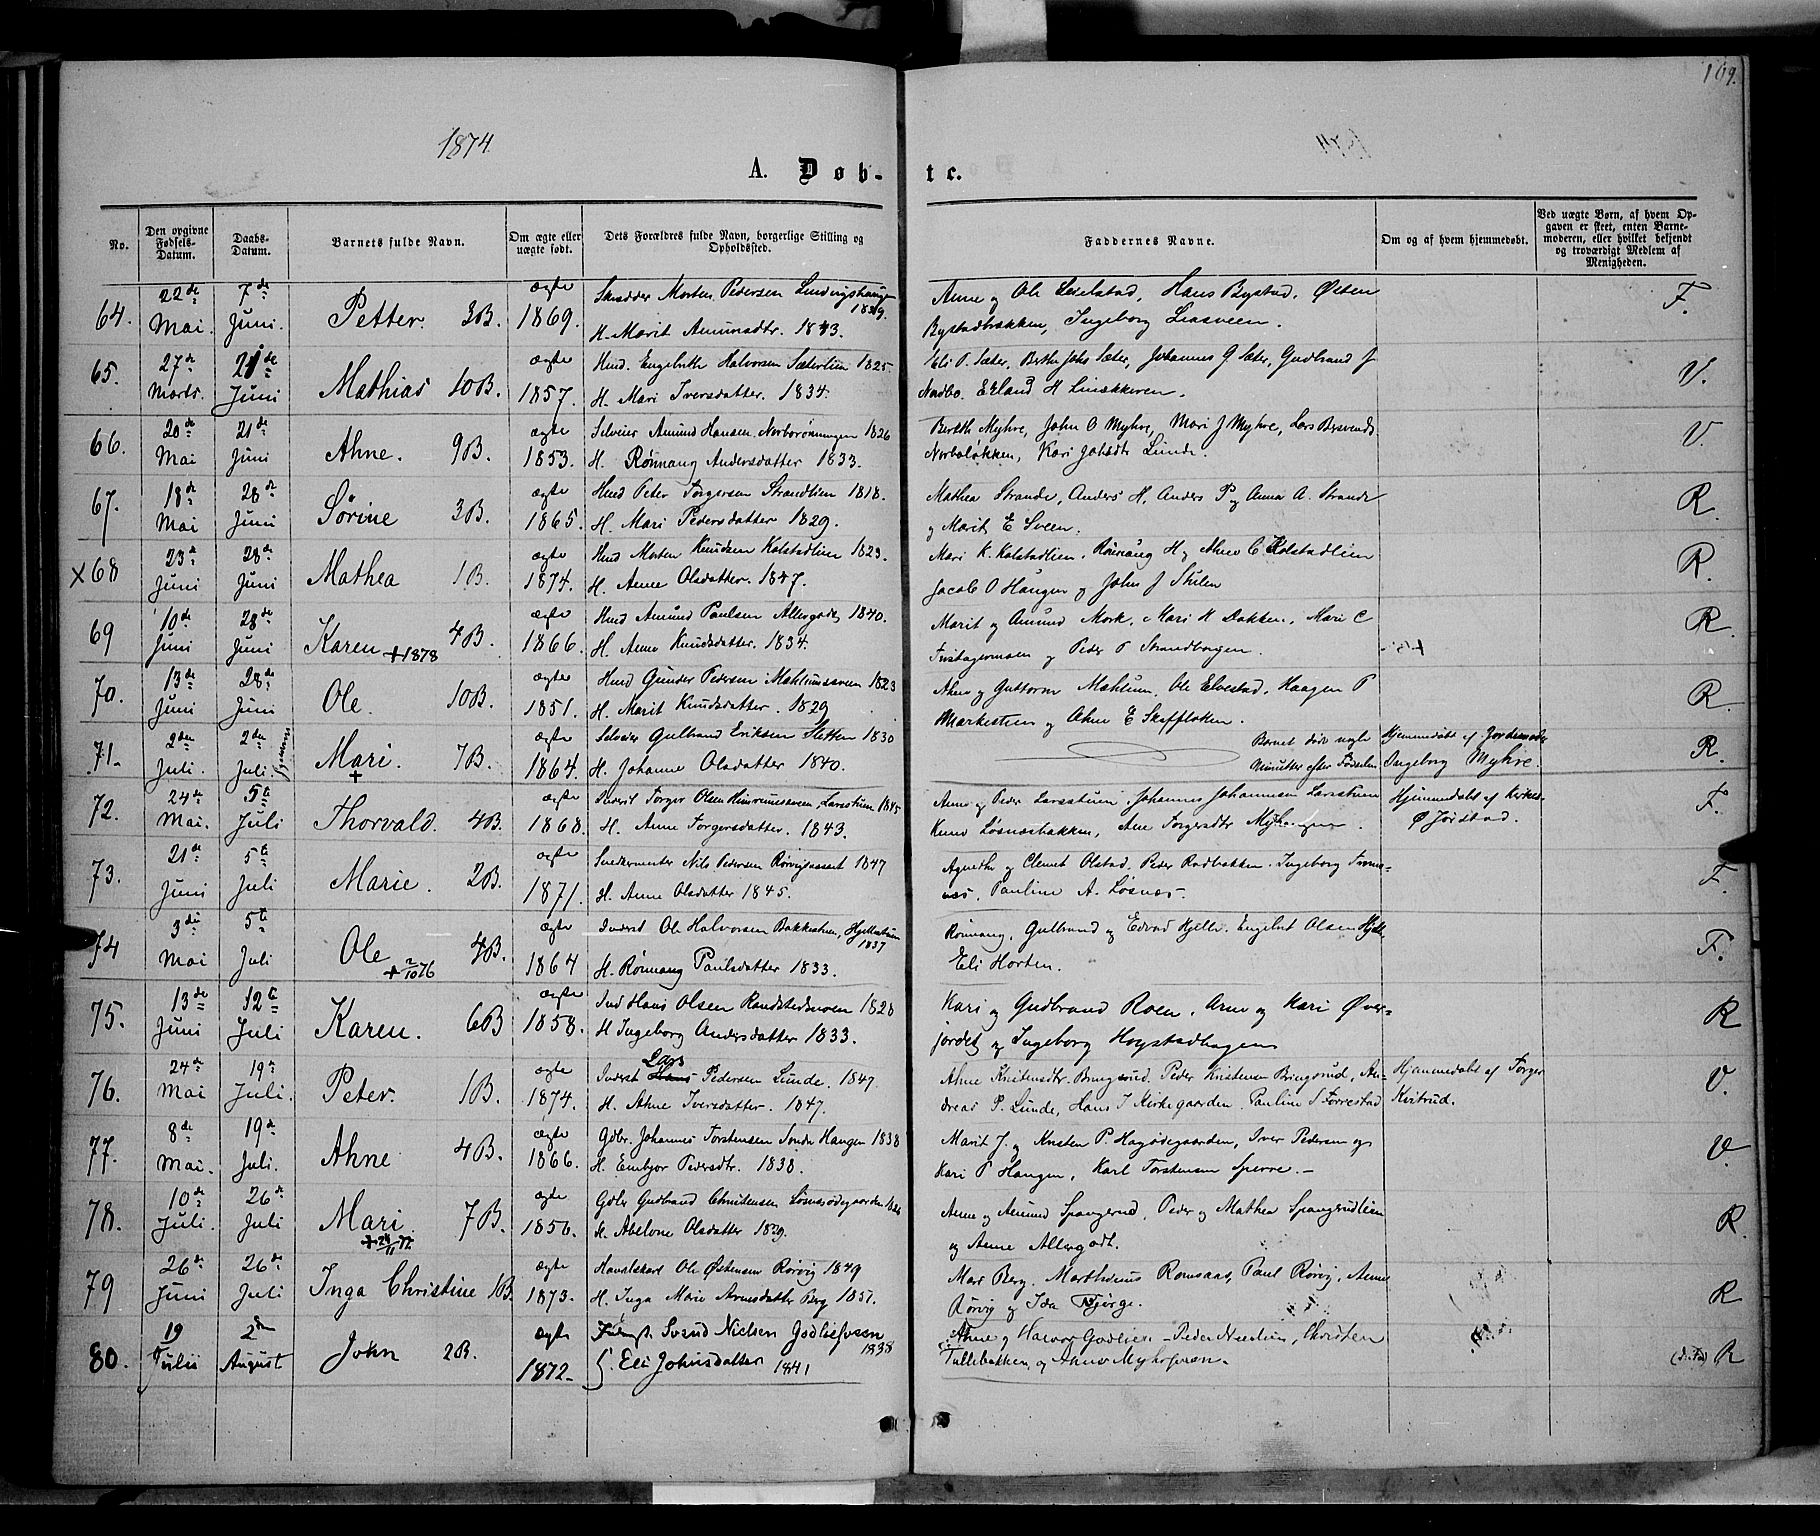 109.
1874
A. Døb-
te.
No.
Den opgivne Fødsels-Datum.
Daabs-Datum.
Barnets fulde Navn.
Om ægte eller uægte født.
Dets Forældres fulde Navn, borgerlige Stilling og Opholdssted.
Faddernes Navne.
Om og af hvem hjemmedøbt.
Ved uægte Børn, af hvem Opgaven er skeet, enten Barnemoderen, eller hvilket bekjendt og troværdigt Medlem af Menigheden.
64. 22de Mai. 7de Juni. Petter. 3B. ægte 1869. Skrædder Morten Pedersen 1839.
H. Marit Amundsdtr. 1843.
Anne og Ole Leielstad, Hans Bystad, Østen
Bystadbakken, Ingeborg Liasveen. F.
65. 27de Marts. 21de Juni Mathias 10B. ægte 1857. Hmd. Engebreth Halvorsen Sæterlien 1825
H. Mari Iversdatter. 1834.
Eli P. Sæter, Berthe Johs Sæter, Johannes G. Sæter, Gudbrand J
Nordbo. Erland H V.
66. 20de Mai 21de Juni Ahne. 9B. ægte 1853. Selveier Amund Hansen 1826
H. Rønnaug Andersdatter 1833.
Bereth Myhre, John O Myhre, Mari J Myhre, Lars
Kari Lunde. V.
67. 18de Mai 28de Juni Sørine 3B. ægte 1865. Hmd Peter Torgersen Strandlien 1818.
H. Mari Pedersdatter 1829.
Mathea Strande, Anders H. Anders P og Anna A. Strande
og Marit E Sveen. R.
X68 23de Juni 28de Juni Mathea 1B. ægte 1874. Hmd Morten Knudsen Kolstadlien 1823.
H. Anne Olsdatter. 1847.
Mari K. Kolstadlien. Rønnaug H og Ahne C Kolstadlien
Jacob O Haugen og John J R.
69 10de Juni 28de Juni Karen +1878 4B. ægte 1866. Hmd Amund Paulsen Allergodt 1840.
H. Anne Knudsdatter. 1834.
Marit og Amund Mork, Mari H Bakken, Mari C
og Peder P Strandborgen. R.
70. 13de Juni 28de Juni Ole. 10B. ægte 1851. Hmd Gunder Pedersen Mæhlumsveen 1823
H. Marit Knudsdatter. 1829
Ahne og Guttorm Mæhlum, Ole Elvestad, Haagen P
og Ahne E R.
71. 2den Juli. 2de Juli Mari. + 7B. ægte 1864. Selveier Gulbrand Eriksen Sletten 1830
H. Johanne Olsdatter 1840.
Barnet døde nogle Minutter efter Fødselen
Hjemmedøbt af Jordemoder Ingeborg Myhre. R.
72. 24de Mai. 5te Juli Thorvald. 4B. ægte 1868. Inderst Torger Olsen 1845
H. Anne Torgersdatter. 1843.
Anne og Peder Larsstuen, Johannes Johannesen Larsstuen
Løsnæsbakken, Ane Torgersdtr
Hjemmedøbt af Kirkes. Ø Jordstad. F.
73. 21de Juni 5te Juli Marie. 2B. ægte 1871. Snedkermester Nils Pedersen 1847
H. Anne Olsdatter 1845.
Agnethe og Clemet Olstad, Peder Rodbakken. Ingeborg
Pauline A. Løsnæs. F.
74 3die Mai 5te Juli Ole +2/10 76 4B. ægte 1864 Inderst Ole Halvorsen Bakkestuen, 1837
H. Rønnaug Paulsdatter 1833.
Rønnaug, Gulbrand og Edvard Hjelle. Engebret Olsen
Eli Horten. F.
75. 13de Juni 12te Juli Karen. 6B ægte 1858. Ind Hans Olsen 1828
H Ingeborg Andersdatter 1833.
Kari og Gudbrand Roen, Arne og Kari Øver-
jordet og Ingeborg Hogstadhagen R
76. 24de Mai 19de Juli. Peter. 1B. ægte 1874. Inderst Lars Pedersen Lunde. 1847
H. Ahne Iversdatter. 1847.
Ahne Kristensdtr. Bringsrud. Peder Kristensen Bringsrud, An-
dreas P. Lunde, Hans J Kirkegaarden. Pauline S Forrestad
Hjemmedøbt af Torger Kvitrud. V.
77. 8de Mai. 19de Juli. Ahne 4B. ægte 1866. Gdbr. Johannes Torstensen Søndre Haugen 1838
H. Embjør Pedersdtr. 1838.
Marit J. og Kristen P. Iver Pedersen og
Kari P Haugen, Karl Torstensen Sperre. - V.
78. 10de Juli. 26de Juli Mari. 7B. ægte 1856. Gdbr Gudbrand Christensen
H. Abelone Olsdatter 1829.
Anne og Amund Spangrud, Peder og Mathea Spangrudlien
og Anne Allergodt. R.
79 26de Juni 26de Juli Inga Christine 1B. ægte 1873. Ole Østensen Rørvig 1849
H. Inga Marie Arnesdatter Berg 1851.
Mari Berg. Marthinus Romsaas, Paul Rørvig, Anne
Rørvig og Ida Bjørge. R
80. 19 Julii 2den August John 2B. ægte 1872. Svend Nielsen Godliesveen 1838
H. Eli Johnsdatter 1841
Ahne og Halvor Godlien - Peder Christen
Tullebakken, og R